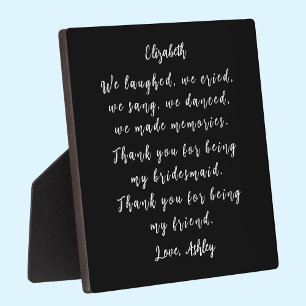 Elizabeth
We laughed, we cried,
we sang, we danced,
we made memories.
Thank you for being
my bridesmaid.
Thank you for being
my friend.
Love, Ashley